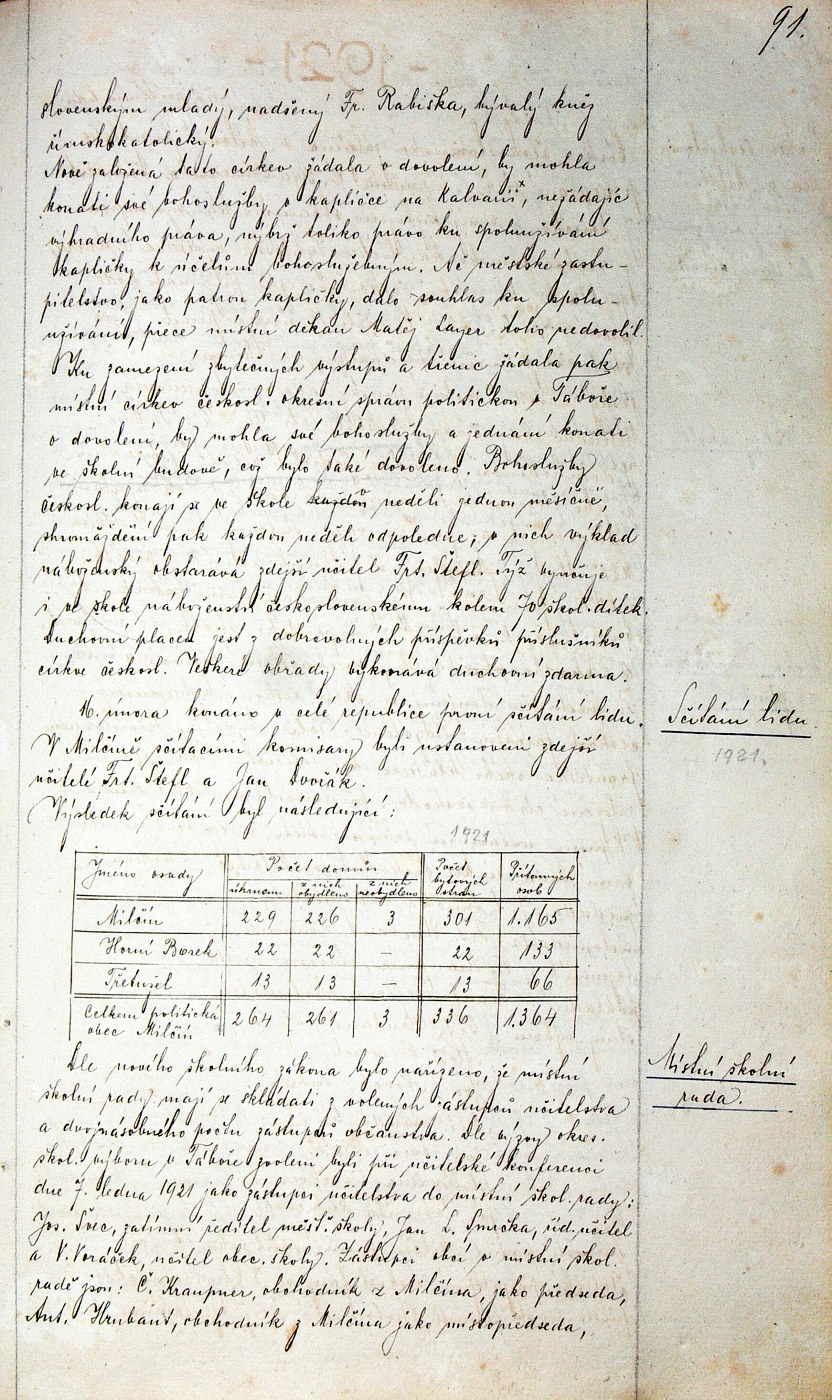 91.
slovenským mladý, nadšený Fr. Rabiška, bývalý kněz
římskokatolický.
Nově založená tato církev žádala o dovolení, by mohla
konati své bohoslužby v kapličce na Kalvarii x, nežádajíc
výhradního práva, nýbrž toliko právo ku spoluužívání
kapličky k účelům bohoslužebným. Ač městské zastu-
pitelstvo, jako patron kapličky, dalo souhlas ku spolu-
užívání, přece místní děkan Matěj Layer toho nedovolil.
Ku zamezení zbytečných výstupů a třenic žádala pak
místní církev českosl. okresní správu politickou v Táboře
o dovolení, by mohla své bohoslužby a jednání konati
ve školní budově, což bylo také dovoleno. Bohoslužby
českosl. konají se ve škole každou neděli jednou měsíčně,
shromáždění pak každou neděli odpoledne; v nich výklad
náboženský obstarává zdejší učitel Frt. Štefl. Týž vyučuje
i ve škole náboženství československému kolem 70 škol. dítek.
Duchovní placen jest z dobrovolných příspěvků příslušníků
církve českosl. Veškeré obřady vykonává duchovní zdarma.
16. února konáno v celé republice první sčítání lidu.
Sčítání lidu
1921.
V Milčíně sčítacími komisary byli ustanoveni zdejší
učitelé Frt. Štefl a Jan Dvořák.
Výsledek sčítání byl následující:
1921
Jméno osady Počet domů Počet bytových stran Přítomných osob
úhrnem z nich obydleno z nich neobydleno
Milčín 229 226 3 301 1.165
Horní Borek 22 22 — 22 133
Třetužel 13 13 — 13 66
Celkem politická obec Milčín 264 261 3 336 1.364
Dle nového školního zákona bylo nařízeno, že místní
Místní školní
rada.
školní rady mají se skládati z volených zástupců učitelstva
a dvojnásobného počtu zástupců občanstva. Dle výzvy okres.
škol. výboru v Táboře zvoleni byli při učitelské konferenci
dne 7. ledna 1921 jako zástupci učitelstva do místní škol. rady:
Jos. Švec, zatímní ředitel měšť. školy, Jan L. Smrčka, úd. učitel
a V. Voráček, učitel obec. školy. Zástupci obcí v místní škol.
radě jsou: Č. Kraupner, obchodník z Milčína, jako předseda,
Ant. Hrubant, obchodník z Milčína jako místopředseda,